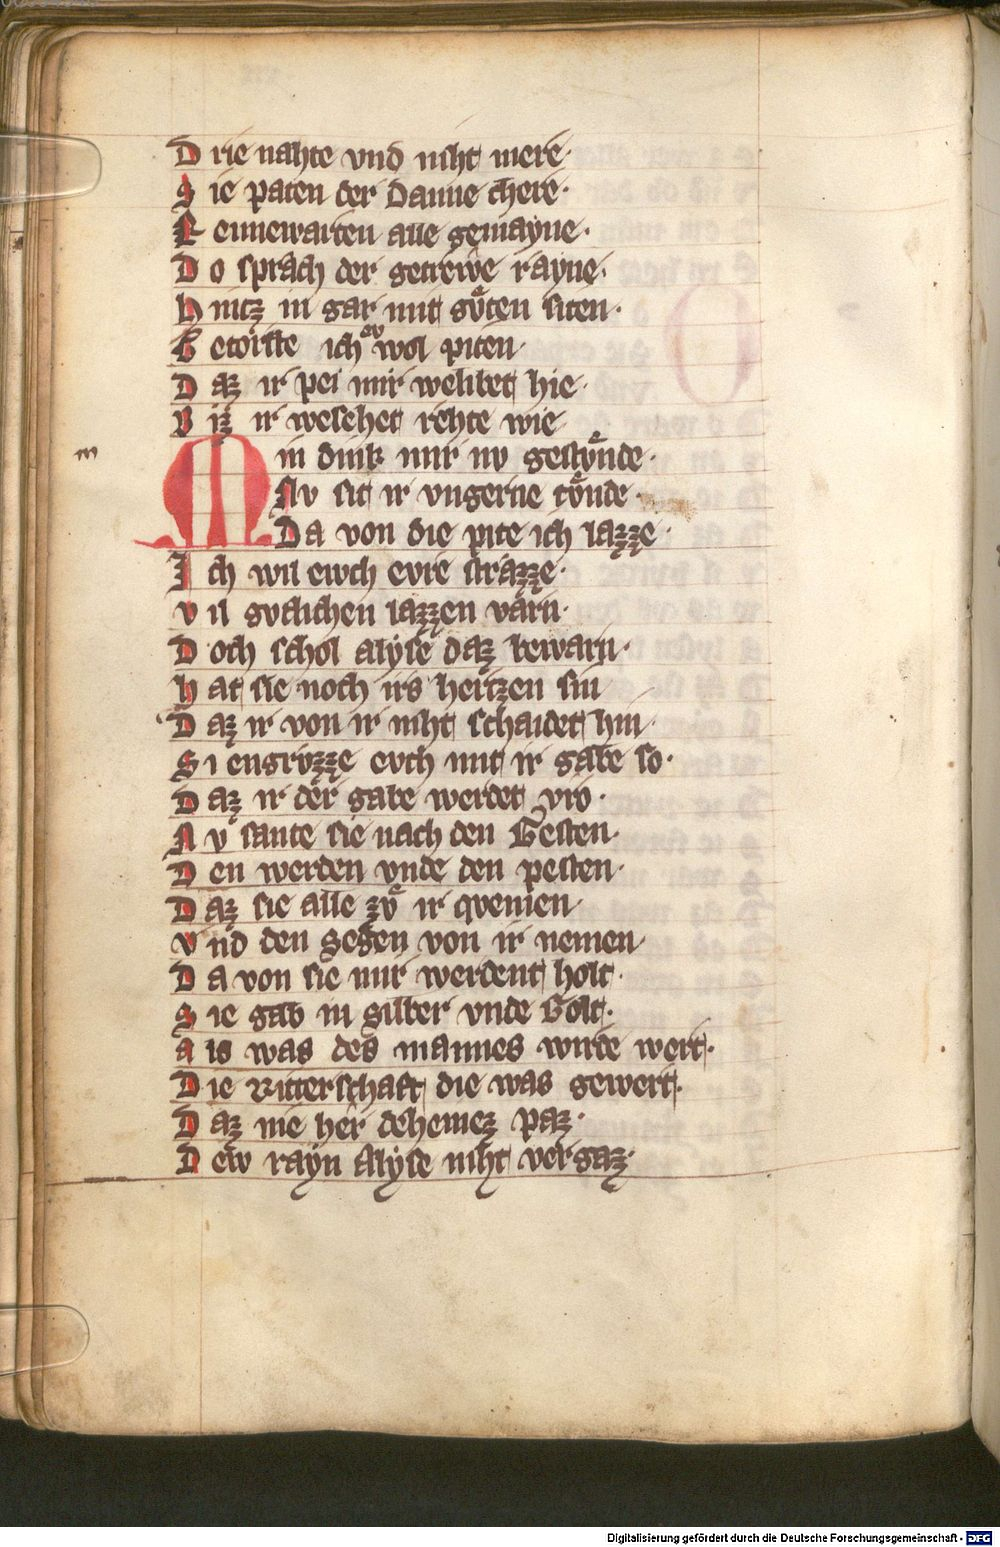 D rie nahte vnd niht mere·
S ie paten der danne chere·
R ennewarten alle gemayne·
D o sprach der getrewe rayne·
H nitz in gar mit gůten siten·
G etörste ich ev wol piten·
D az ir pei mir welibet hie·
B iz ir wesehet rehte wie
m
Min dink mir nv gestůnde·
Nv sit ir vngerne tůnde·
Da von die pite ich lazze·
I ch wil ewch evre strazze·
v il gvtlichen lazzen varn·
D och schol alyse daz bewarn·
h at sie noch irs hertzen sin
D az ir von ir niht schaidet hin·
S i engrvzze evch mit ir gabe so·
D az ir der gabe werdet vro·
N v sante sie nach den Gesten·
D en werden vnde den pesten·
D az sie alle zů ir qvemen·
v nd den segen von ir nemen·
D a von sie mir werdent holt·
S ie gab in silber vnde Golt·
A ls was des mannes wirde wert·
D ie Ritterschaft die was gewert·
D az nie her dehemez paz·
D ew rayn Alyse niht vergaz·
Digitalisierung gefördert durch die Deutsche Forschungsgemeinschaft - DFG